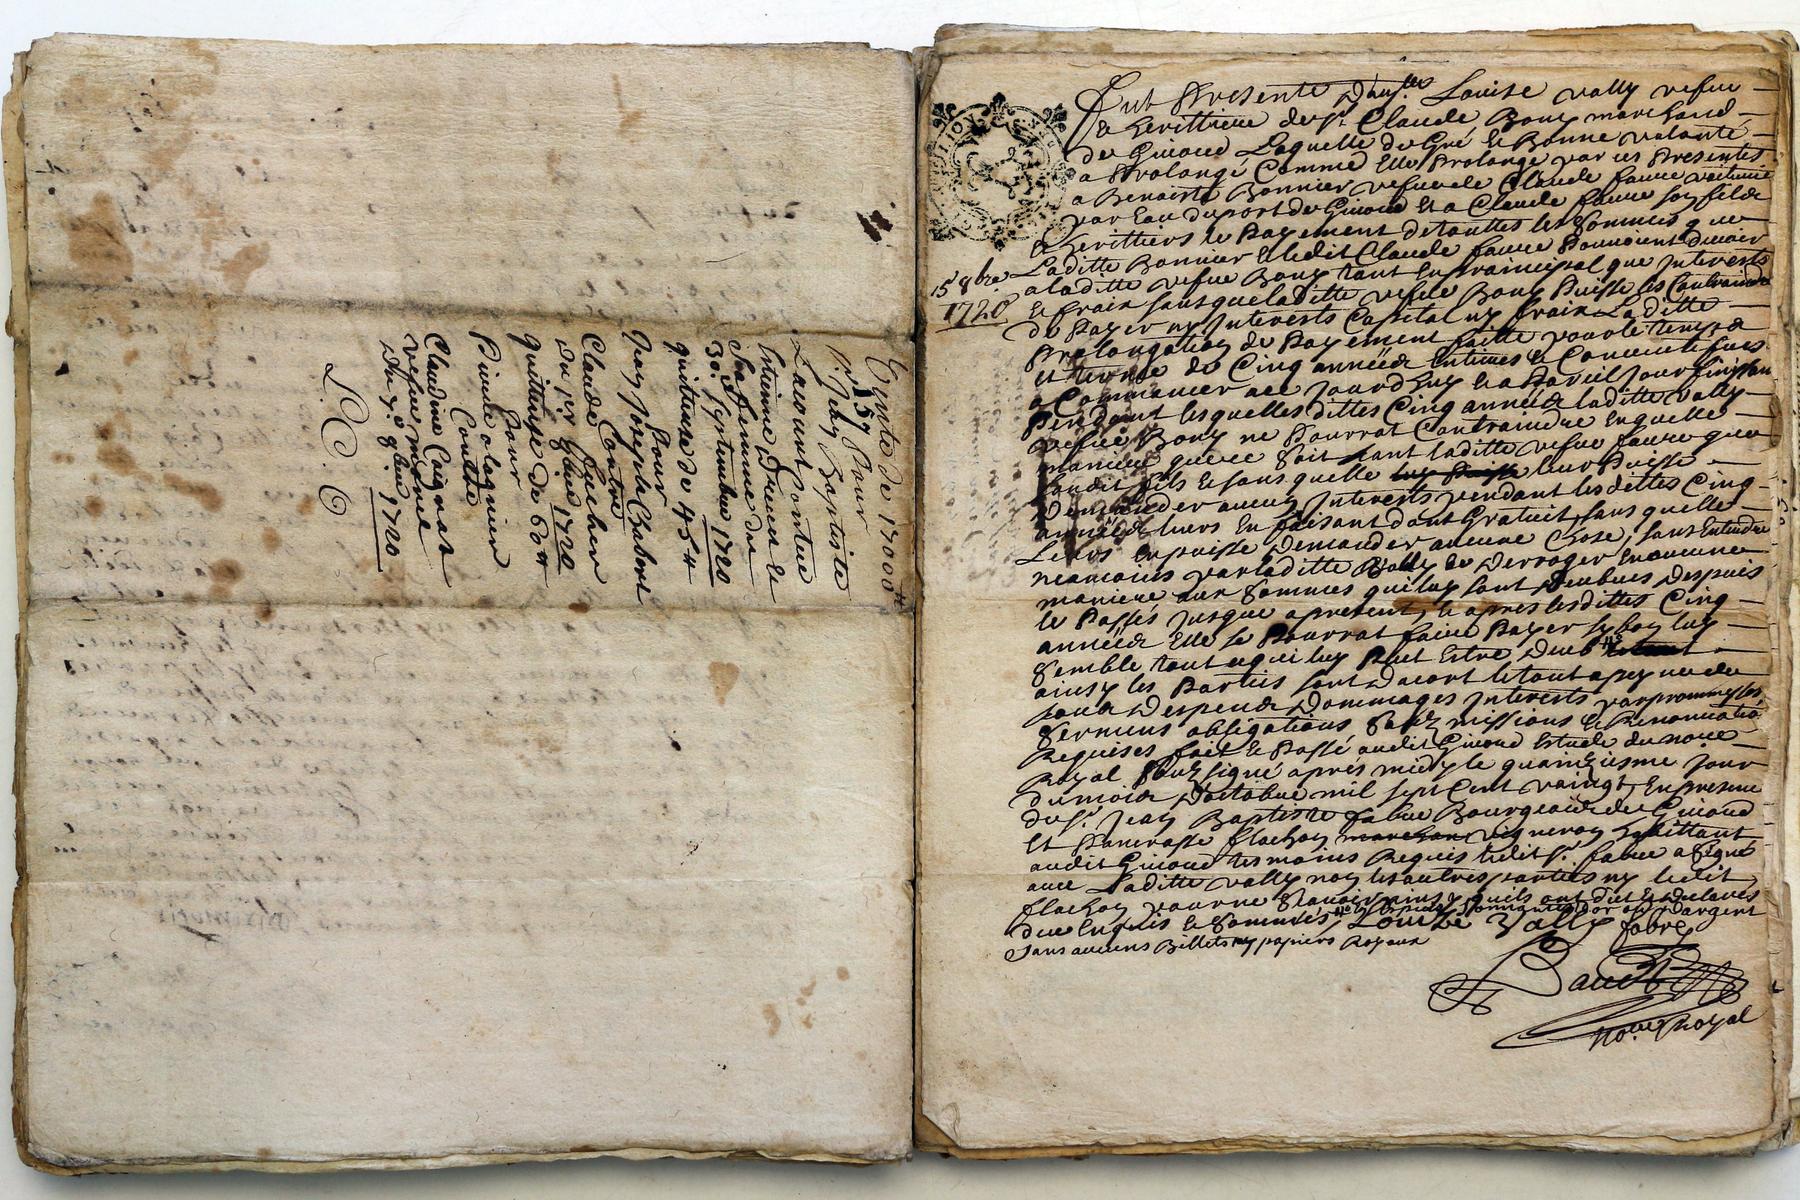 Vente de 17000 tt
n.º 159 Pour
Sr. Jean Baptiste
Lacourt Contre
Estienne Dreven et
Sa femme du
30e. Septembre 1720
quittance de 454 tt
Pour
Joseph Chabert
Contre
Claude Fucher
du 1er 8bre 1720
quittance de 60 tt
Pour
Pierre olagnier
Contre
Claudine Coignat
vefue
du 7e 8bre 1720
L. C. C
15 8bre
1720
Fut Presente Damlle Louise vally vefue
& herittiere de Sr. Claude Bouy marchand
de Giuord Laquelle de Gré & Bonne volonte
a Prolongé Comme Elle Prolonge par ces Presentes
a Benoiste Bonnier vefue de Claude faure voiturier
par Eau du port de Giuord et a Claude faure son fils &
& herittiers le Payement de touttes les Sommes que
Laditte Bonnier & ledit Claude faure Pourroient deuoir
a laditte vefue Bouy tant En principal que Interests
& fraix sans que laditte vefue Bouy Puisse les Contraindre
de Payer ny Interests Capital ny fraix Laditte
Prolongation de Payement faitte pour le temps &
et terme de Cinq années Entieres & Consecutifues
a Commancer ce Jourdhuy & a Pareil Jour finissant
Pendant lesquelles dittes Cinq années laditte vally
vefue Bouy ne Pourrat Contraindre En quelle
maniere que ce soit tant laditte vefue faure que
Sondit fils & sans quelle leur Puisse
Demander aucun Interests pendant les dittes Cinq
années Leurs En faisant don Gratuit sans quelle
Leurs En puisse Demander aucune Chose, sans Entendre
neamoins par laditte vally de Derroger En aucune
maniere aux Sommes qui luy sont Deubues Despuis
le Passés Jusque a present, & apres lesdittes Cinq
années Elle se Pourrat faire Payer sy bon luy
Semble tout ce qui luy Peut Estre Deub
ainsy les Parties sont Dacort le tout a peyne de
tous Despens Dommages Interests par prommesses
Sermens obligations Soubzmissions & Renonciations
Requises fait & Passé audit Giuord Estude du nore
Royal Soubzsigné apres midy le quainzieme Jour
du mois Doctobre mil sept Cent vaingt En presence
de Sr. Jean Baptiste fabre Bourgeois de Giuord
Et Pancrasse flachon vigneron habittant
audit Giuord tesmoins Requis ledit Sr. fabre a Signé
auec Laditte vally non les autres parties ny ledit
flachon pour ne Scauoir quils ont dit & Declarés
de ce Enquis & Sommés, Espece Sonnante dor ou Dargent
Sans aucuns Billets ny papiers Royaux
Louise Vally fabre
nore. Royal